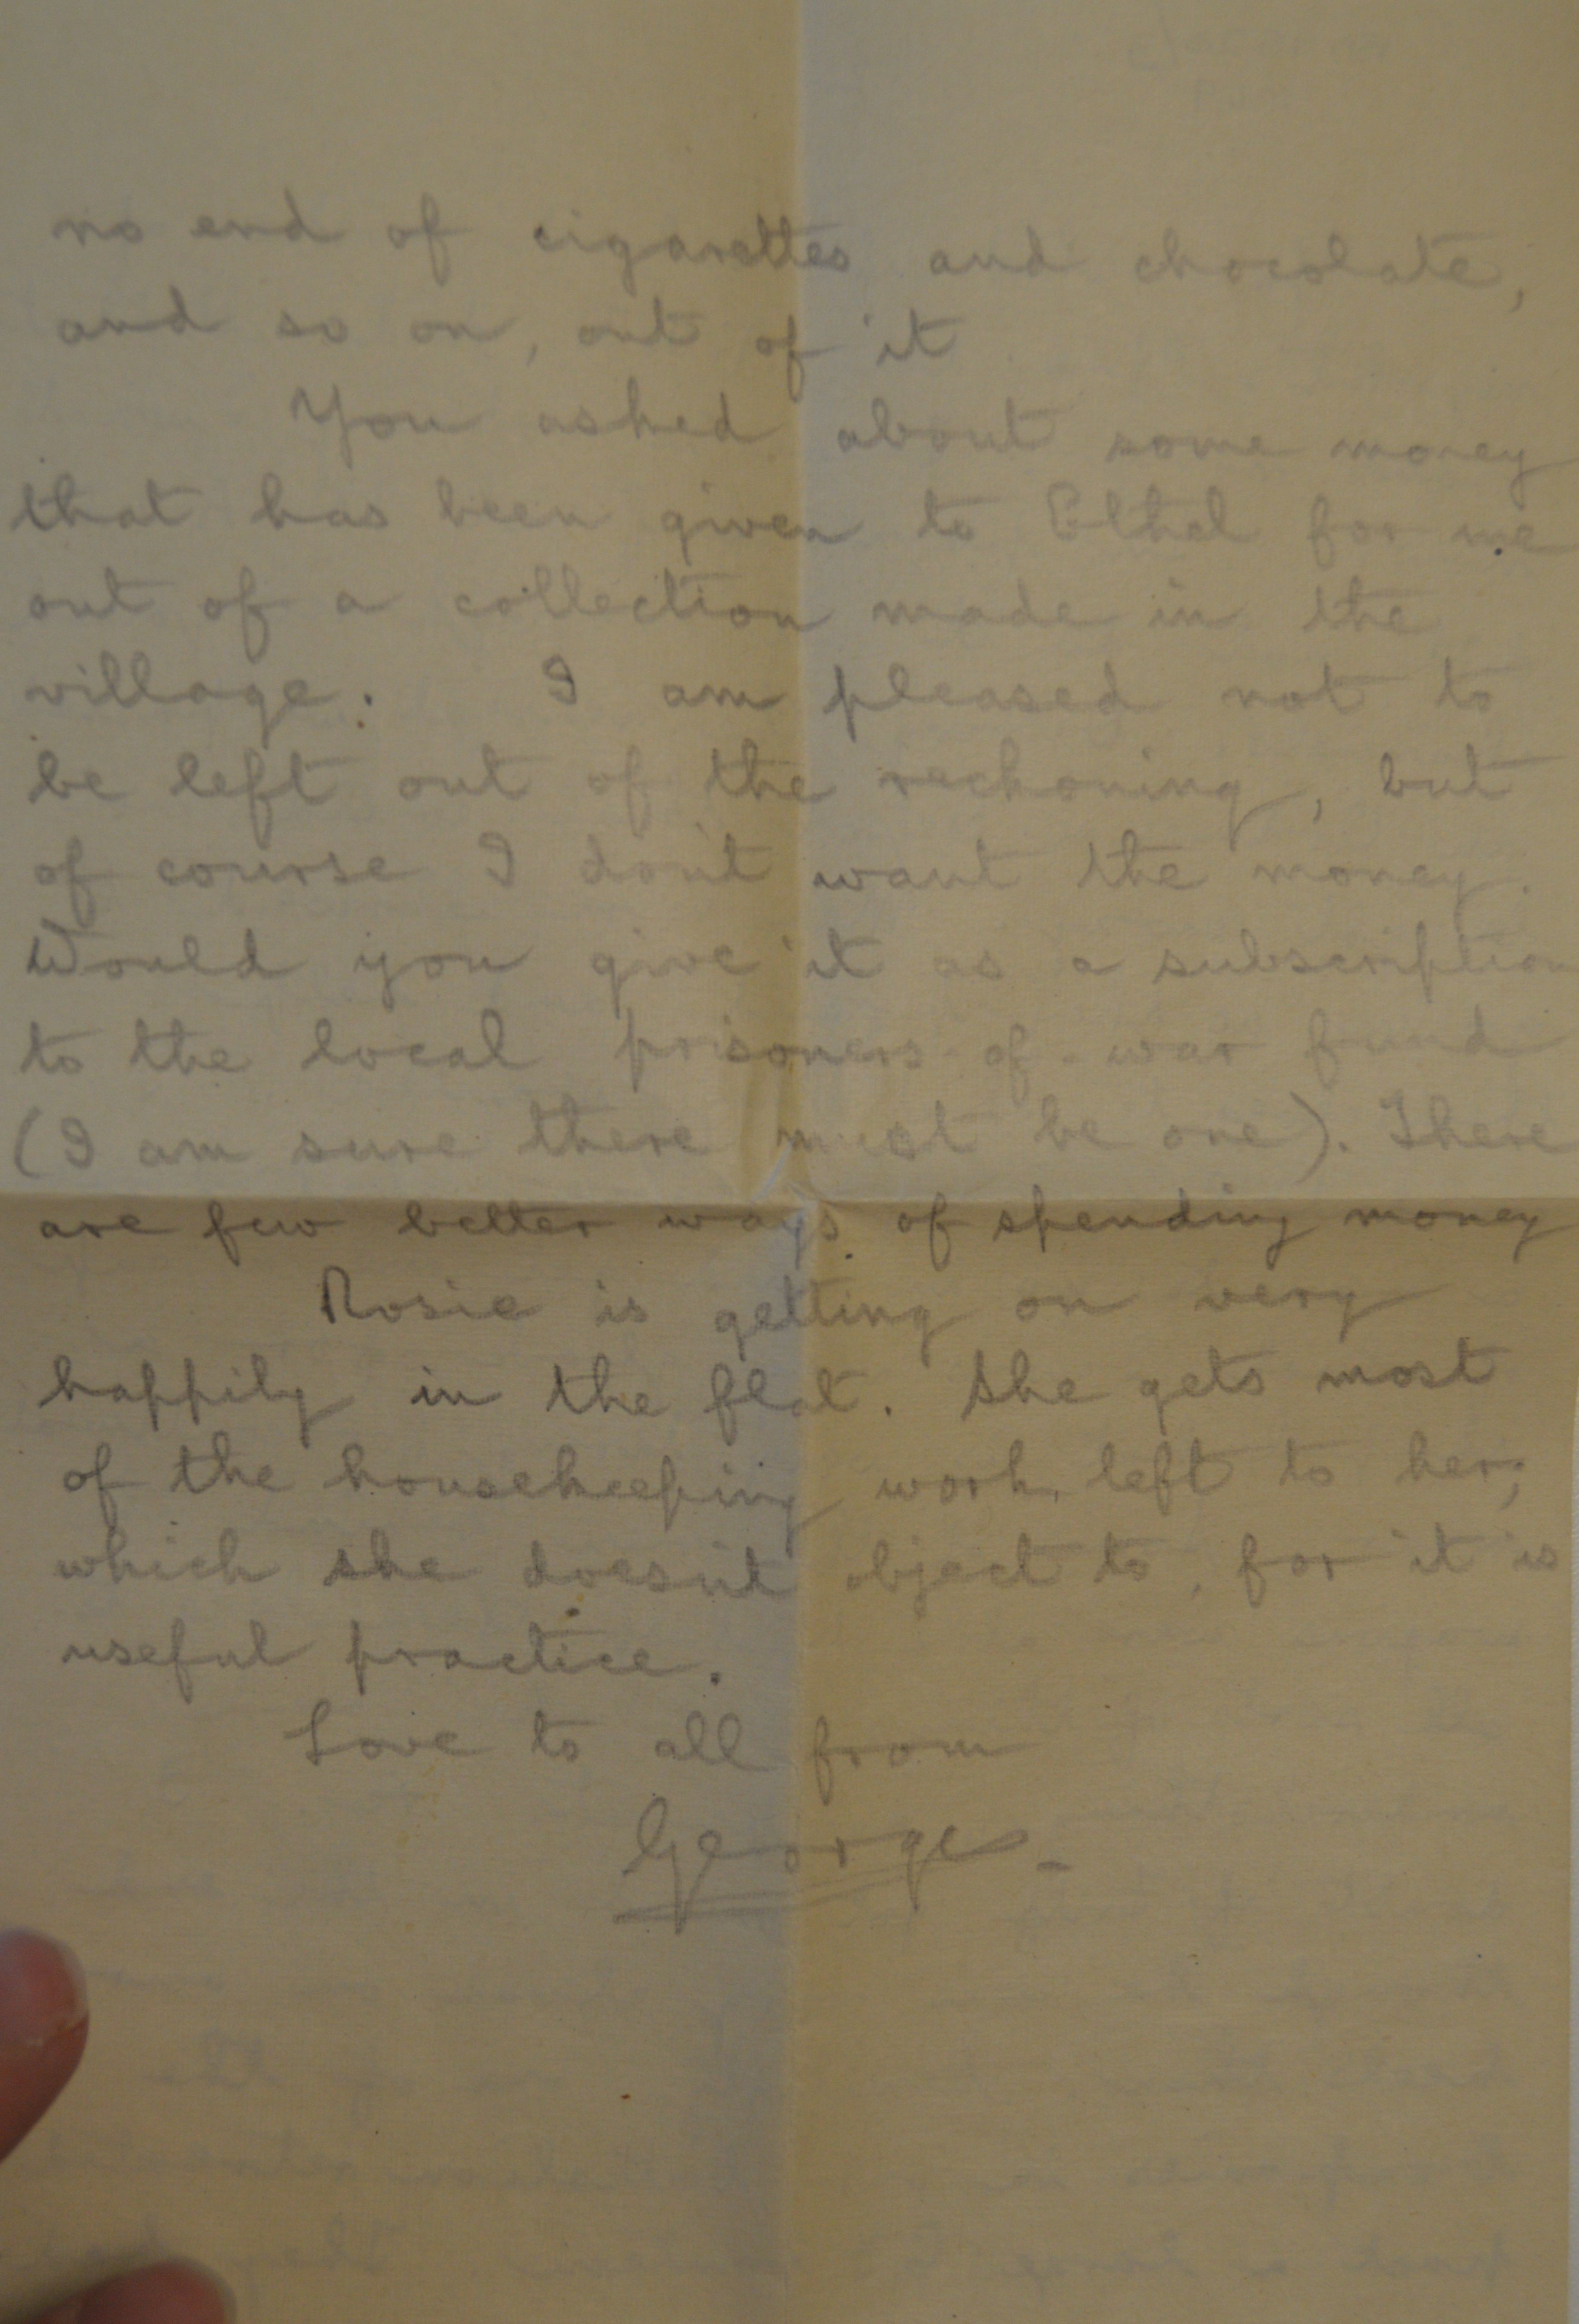 no end of cigarettes and chocolate,
and so on, out of it
You asked about some money
that has been given to Ethel for me
out of a collection made in the
village. I am pleased not to
be left out of the reckoning, but
of course I don't want the money.
Would you give it as a subscription
to the local prisoners-of-war fund
(I am sure there must be one). There
are few better ways of spending money
Rosie is getting on very
happily in the flat. She gets most
of the housekeeping work left to her;
which she doesn't object to, for it is
useful practice.
Love to all from
George.